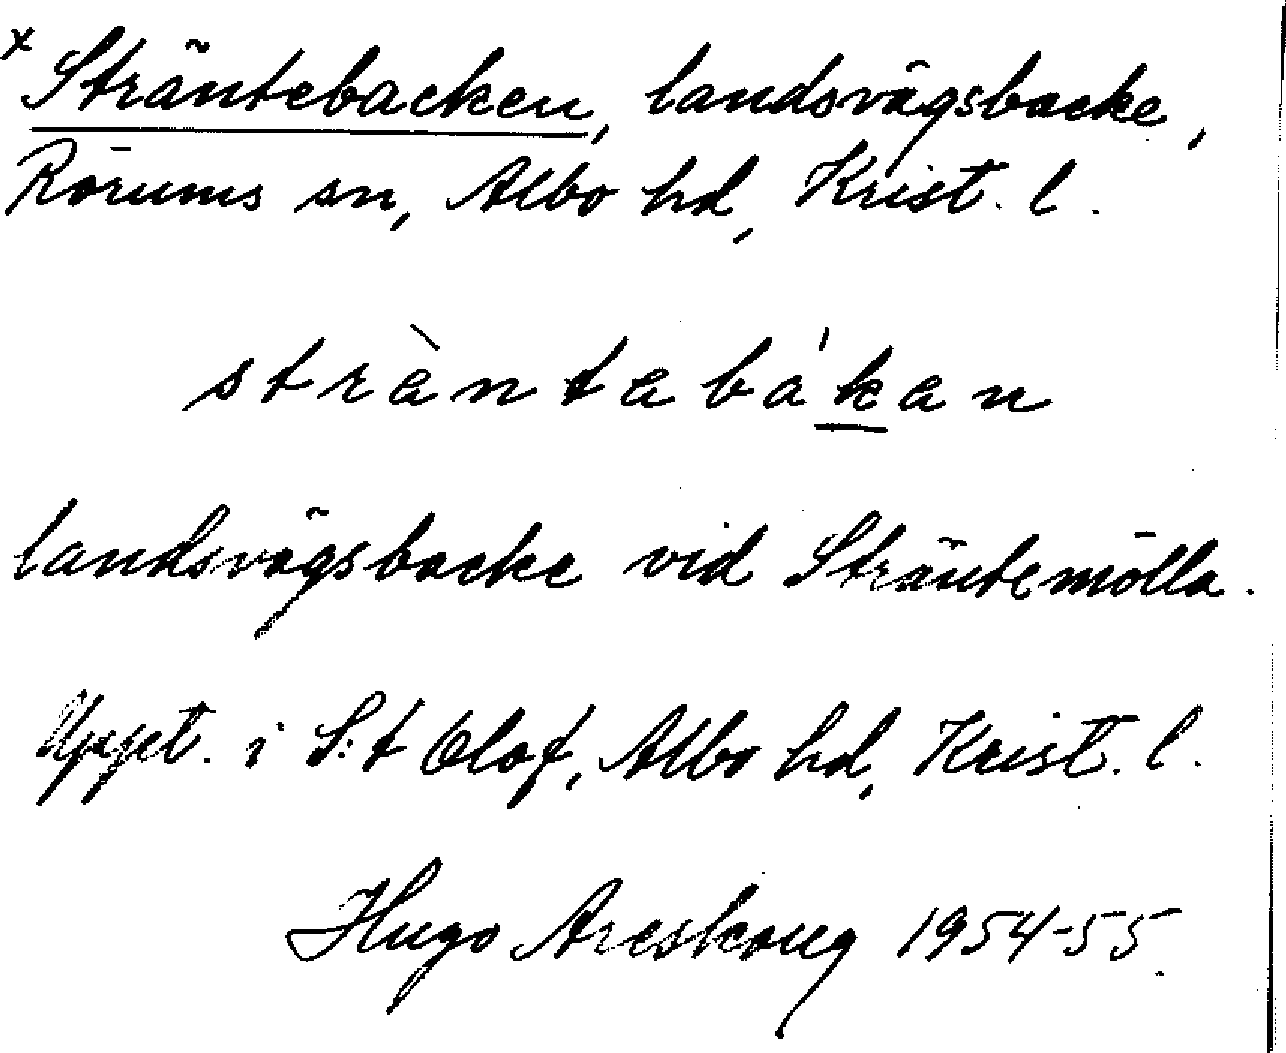 x Sträntebacken, landsvägsbacke,
Rörums sn, Albo hd, Krist. l.
strὲntabákan
landsvägsbacke vid Sträntemölla.
Uppt. i S:t Olof, Albo hd, Krist. l.
Hugo Areskoug 1954-55.